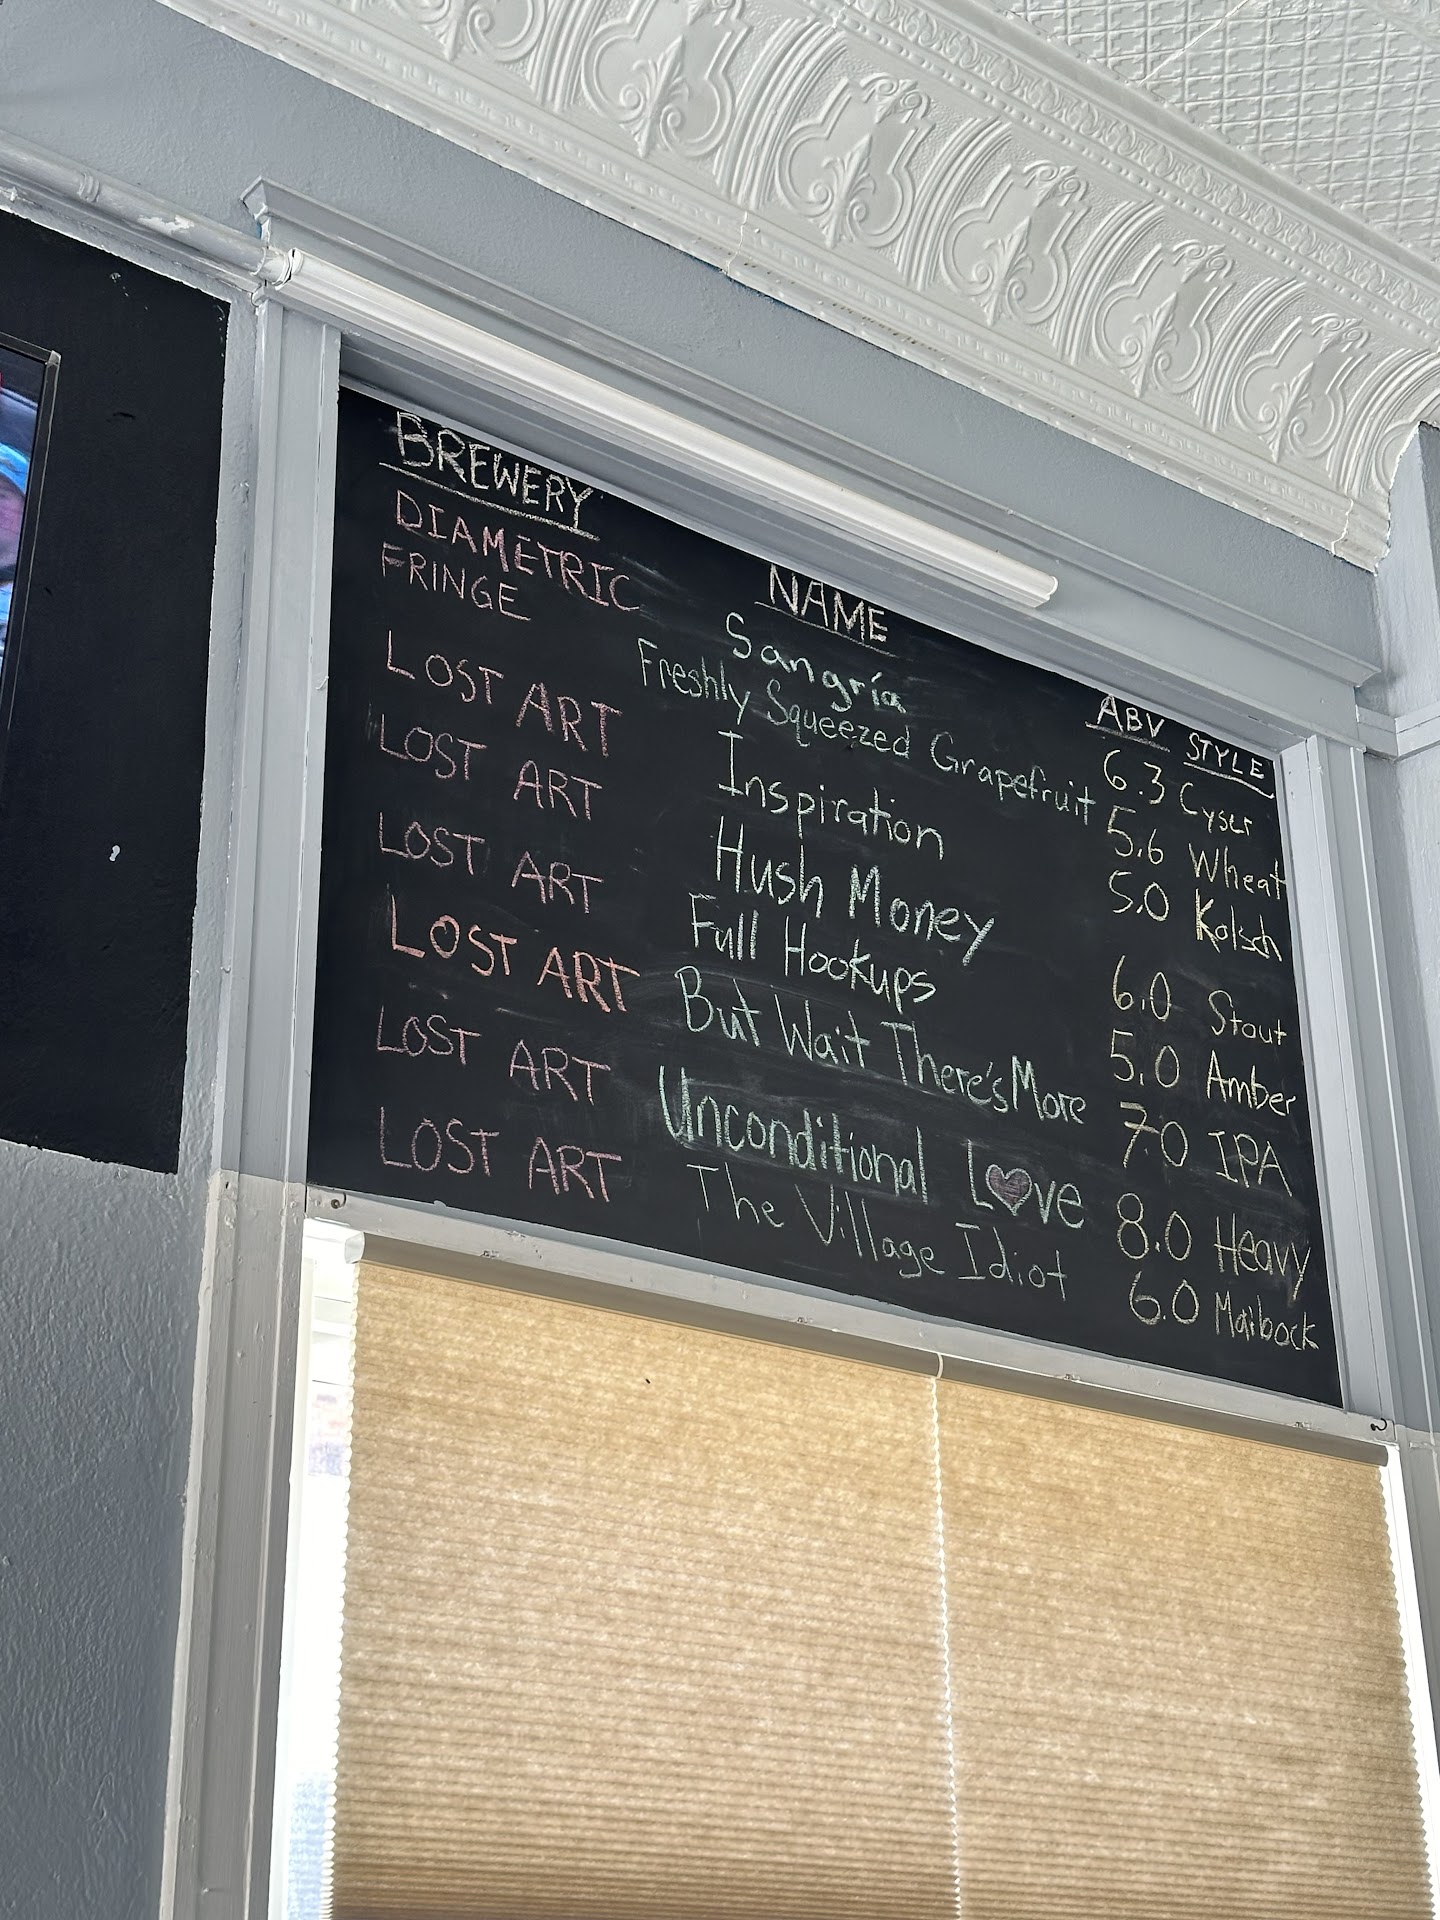 BREWERY NAME ABV STYLE
DIAMETRIC Sangría 6.3 Cyser
FRINGE Freshly Squeezed Grapefruit 5.6 Wheat
LOST ART Inspiration 5.0 Kolsch
LOST ART Hush Money 6.0 Stout
LOST ART Full Hookups 5.0 Amber
LOST ART But Wait There's More 7.0 IPA
LOST ART Unconditional L♥ve 8.0 Heavy
LOST ART The Village Idiot 6.0 Maibock